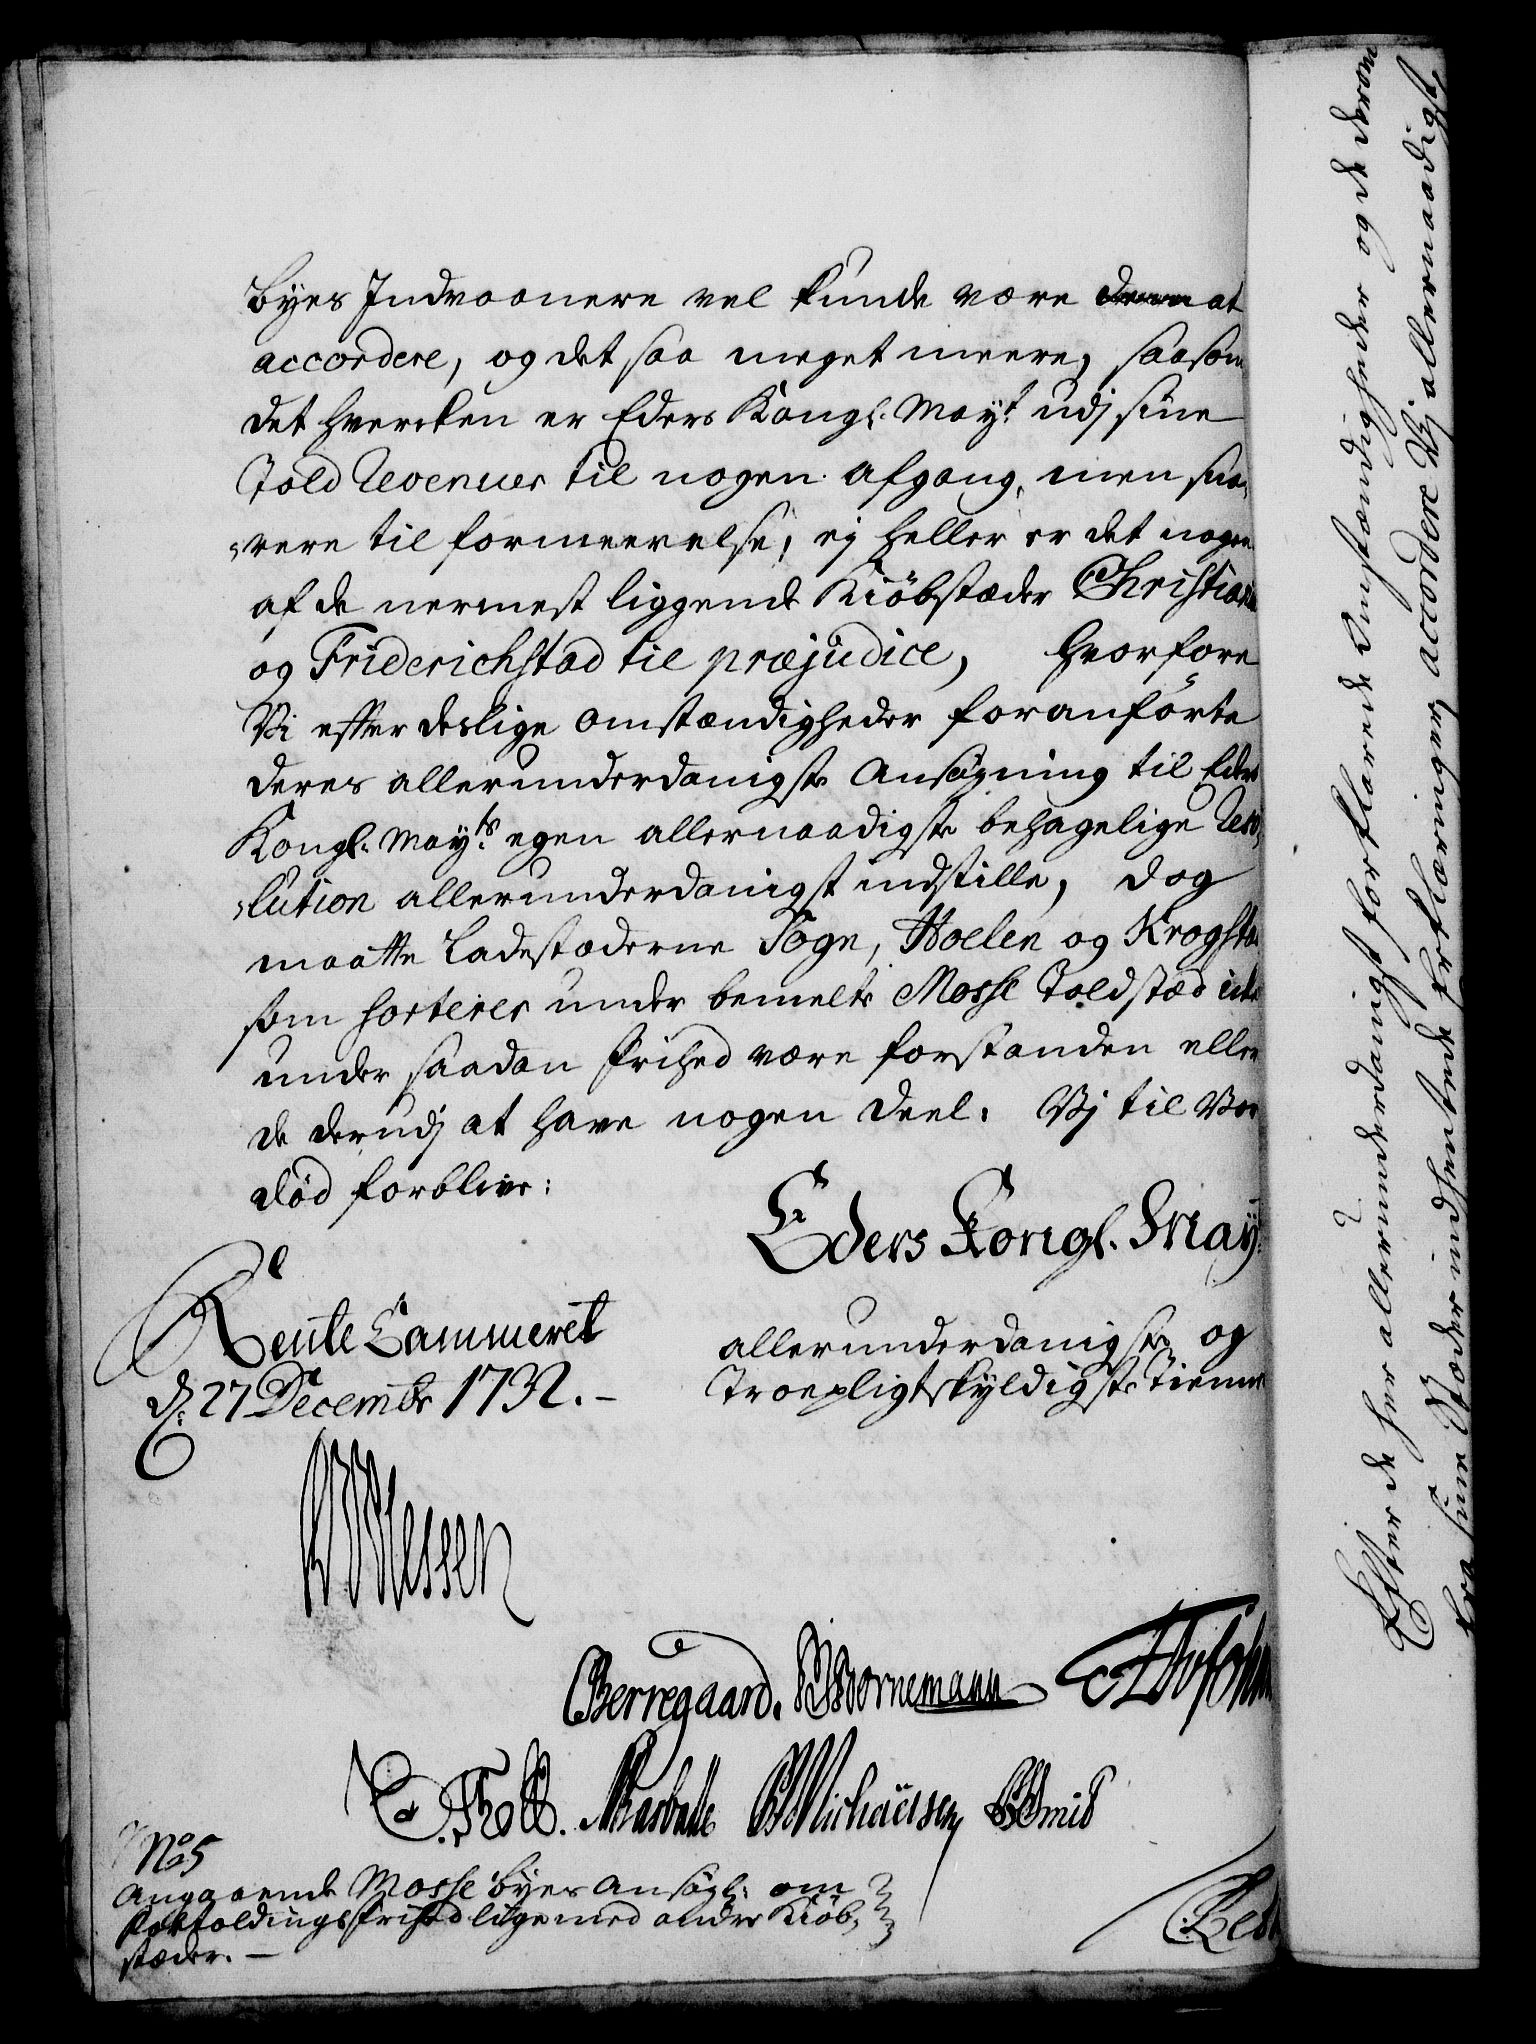 byes Indvaanere vel kunde være at
accordere, og det saa meget meere, saasom
det hvercken er Eders Kongl. Mayt. udj sine
Told Revenuer til nogen afgang, men sna-
-rere til formeerelse, ej heller er det nogen
af de nermest liggende Kiøbstæder Christiania
og Friderichstad til præjudice, Hvorfore
Vi effter deslige omstændigheder foranførte
deres allerunderdanigste Ansøgning til Eders
Kongl. Mayts. egen allernaadigste behagelige Reso-
-lution allerunderdanigst indstille, dog
maatte Ladestæderne Sogn, Hvolen og Krogstad
som sorterer under bemelte Mosse Toldstæd icke
under saadan Frihed være forstanden eller
de derudj at have nogen Deel. Vj til Vor
død forblive:
Eders Kongl. May
Rente Cammeret
d. 27 Decembr 1732.
allerunderdanigste og
Troepligtskyldigste Tienere
Berregaard. Bornemann
Barbalk Michaelsen Smid
No 5
Angaaende Mosse byes Ansøgl: om
Frihed liige med andre Kiøb-
stæder.
Efter de her allerunderdanigst forklarede Omstændigheder og de derom
fra sine Stæder indhentede Erklæringer, accordere Vj allernaadigst